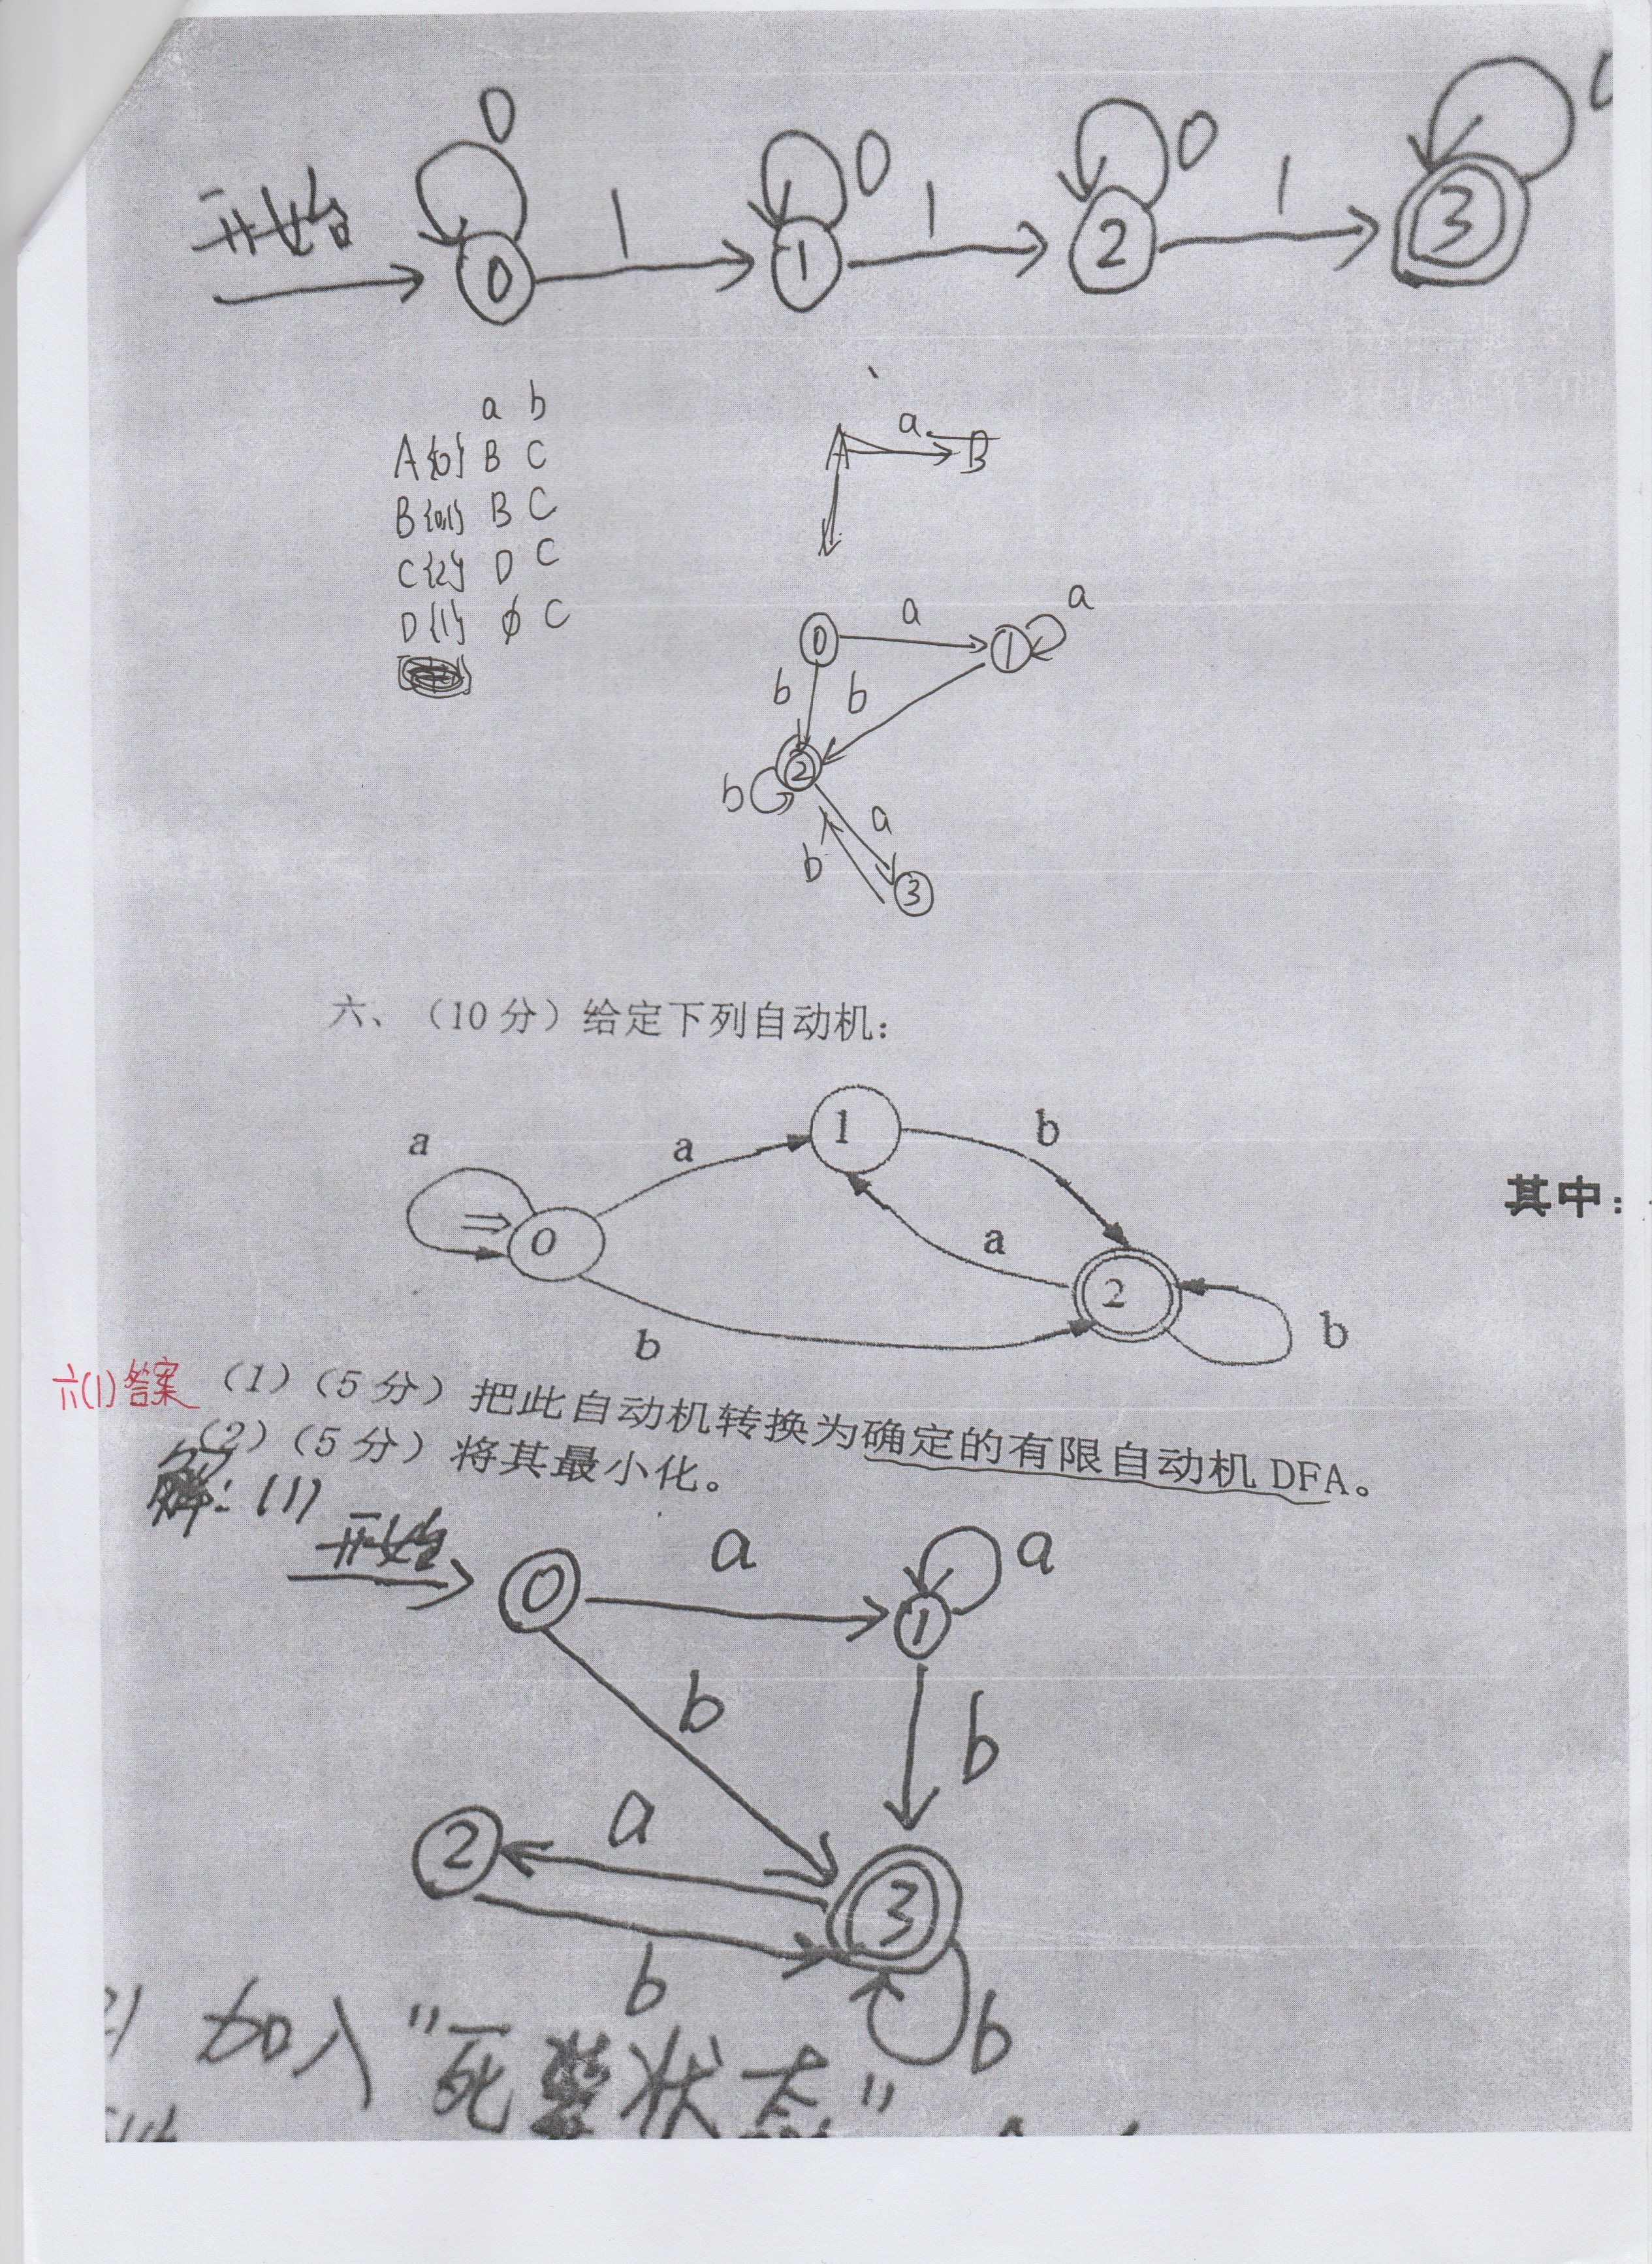 0 0 0
开始 1 1 1
0 1 2 3
a b
A{0} B C
B{0,1} B C
C{2} D C
D{1} ∅ C
A a B
0 a 1 a
b b
2
b a
b 3
六、（10 分）给定下列自动机：
1 b
a a
其中：
⇒ 0 a
2
b b
六(1)答案 （1）（5 分）把此自动机转换为确定的有限自动机 DFA。
（2）（5 分）将其最小化。
解：(1)
开始 0 a 1 a
b b
2 a 3
b b
加入“死装状态”